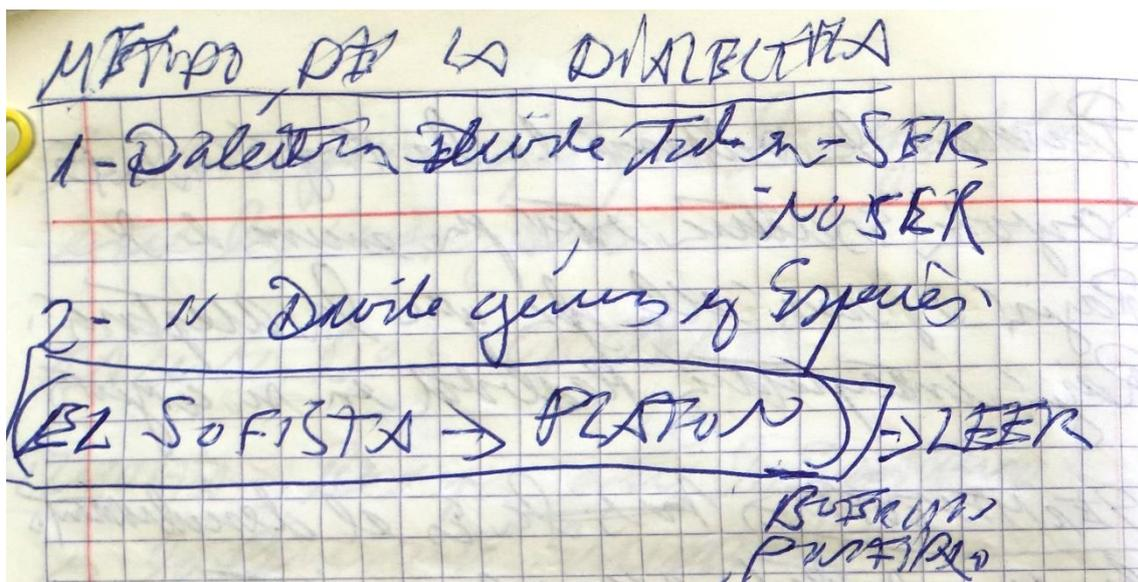 MÉTODO DE LA DIALECTICA
1- Dialéctica Divide Todo en - SER
- NO SER
2- " Divide género y Especies.
(EL SOFISTA → PLATON) → LEER